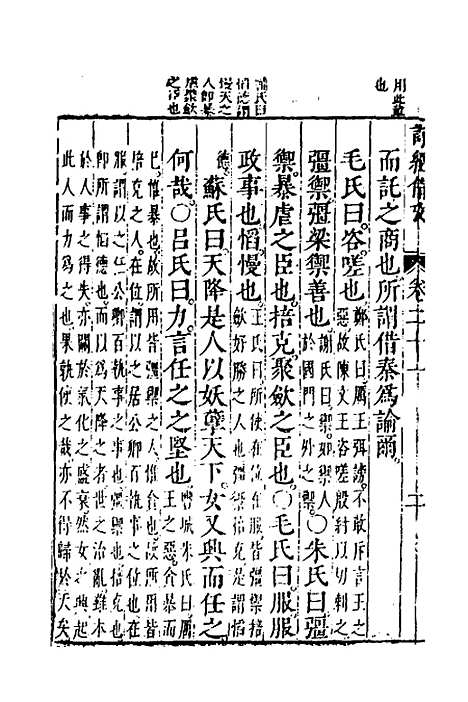 用此敢
也
蘇氏曰
慆慢謂
慢天之
人卽暴
虐聚歛
之臣也
詩經備考 卷二十一
而託之商也所謂借秦爲諭爾。
毛氏曰咨嗟也鄭氏曰厲王弭謗不敢斥言王之惡故陳文王咨嗟殷紂以切刺之
彊禦彊梁禦善也謝氏曰禦如禦人於國門之外之禦〇朱氏曰彊
禦暴虐之臣也掊克聚歛之臣也〇毛氏曰服服
政事也慆慢也王氏曰所使在位在服皆彊禦掊歛好勝之人也彊禦掊克是謂慆
德蘇氏曰天降是人以妖孽天下女又興而任之
何哉〇呂氏曰力言任之之堅也豐城朱氏曰厲王之惡貪暴而
已惟暴也故所用皆彊禦之人惟貪也故所用皆
掊克之人在位謂以之居公卿百執事之位也在
服謂以之任公卿百執事之事也彊禦也掊克也
卽所謂慆德也而以爲天降之者世之治亂雖本
於人事之得失亦關於氣化之盛衰然女之興起
此人而力爲之也果孰使之哉亦不得歸於天矣